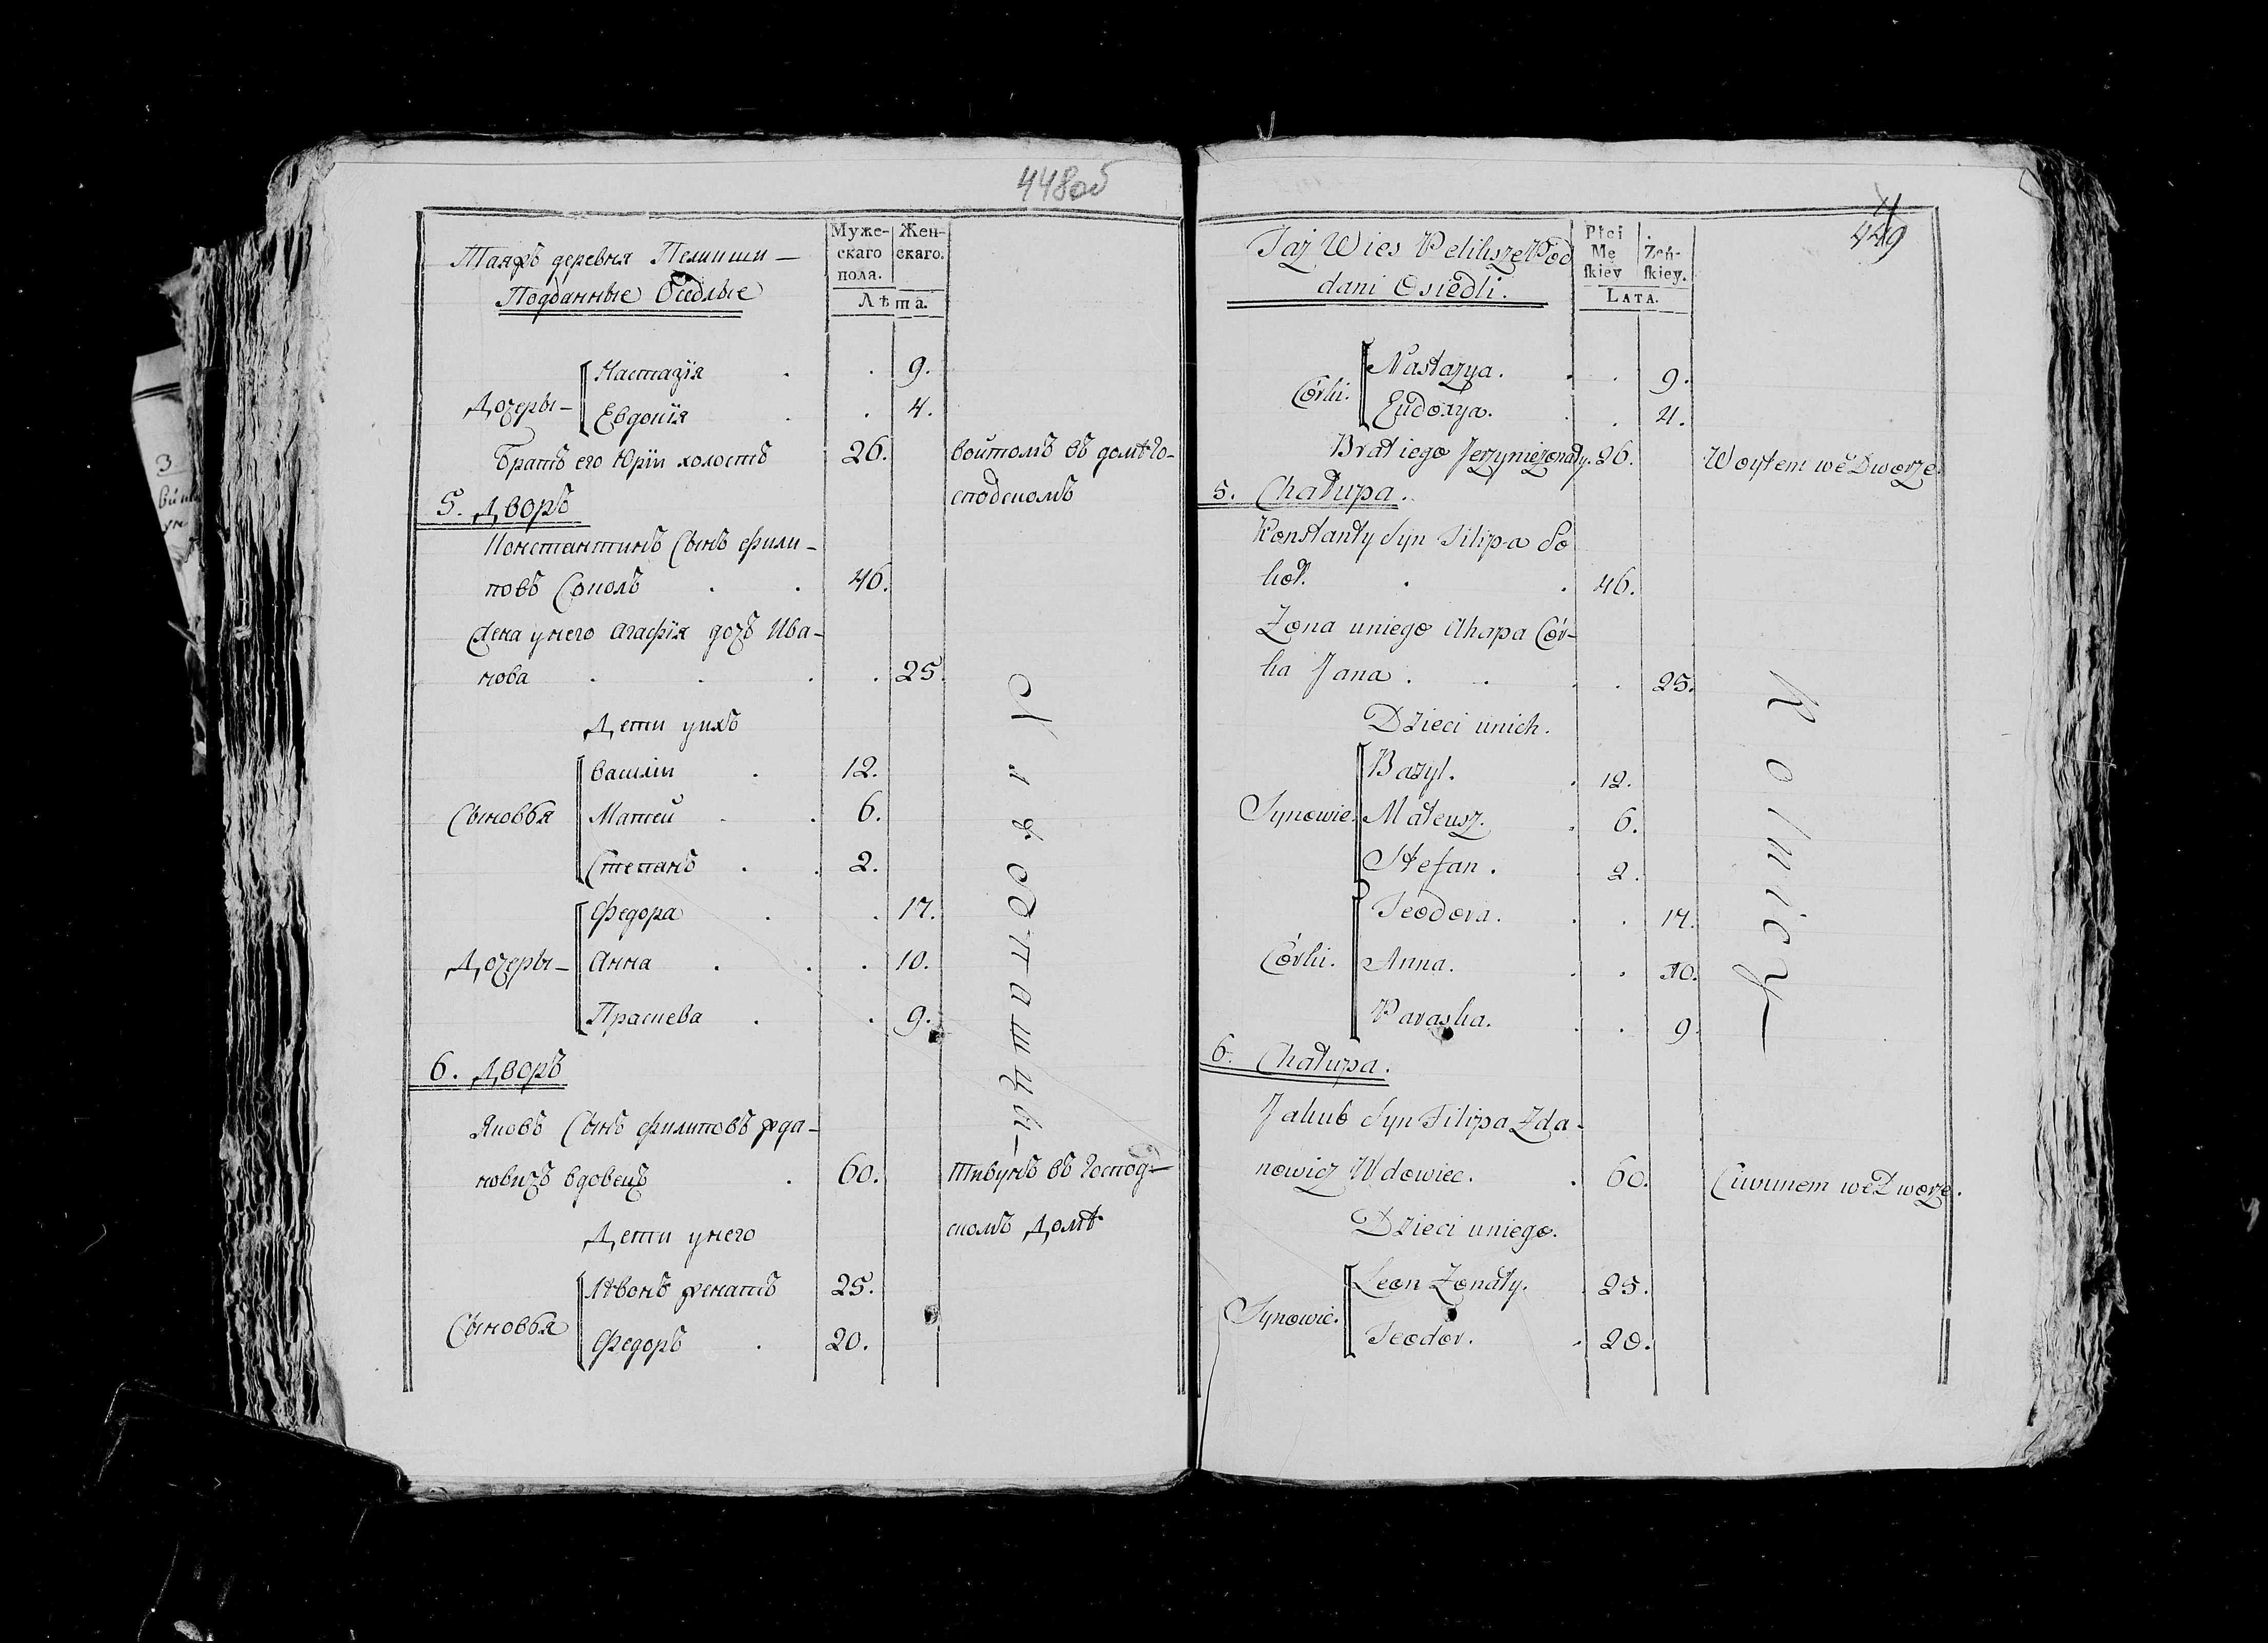 448об
Таяжъ деревня Пеликши —
Подданные Оседлые
Муже-
скаго
пола.
Жен-
скаго.
Лѣта.
Дочеры —
Настазія . . 9.
Евдокія . . 4.
Братъ его Юрiи холостъ 26. войтомъ въ домѣ Го-
сподскомъ
5. Дворъ
Константинъ Сынъ Фили-
повъ Соколъ . . 46.
Жена унего Агафія дочъ Ива-
нова . . . . 25.
Дети унхъ
Сыновья
Василiи . 12.
Матсей . . 6.
Степанъ . . 2.
Дочеры —
Федора . . 17.
Анна . . . 10.
Праскева . . 9.
6. Дворъ
Яковъ Сынъ Филиповъ Жда-
новичъ вдовецъ . 60. Тивунъ въ Господ-
скомъ Домѣ
Дети унего
Сыновья
Лѣвонъ женатъ 25.
Федоръ . 20.
449
Taż Wies Peliksze Pod
dani Osiedli.
Płci
Mę
skiey
Żeń-
skiey.
LATA.
Córki.
Nastazya. . . 9.
Eudoxya. . . 4.
Brat iego Jerzy nieżonaty. 26. Woytem we Dworze
5. Chałupa.
Konstanty Syn Filipa So
koł. . . 46.
Żona uniego Ahapa Cór-
ka Jana . . . . 25.
Dzieci unich.
Synowie.
Bazyl. . 12.
Mateusz. . 6.
Stefan . . 2.
Córki.
Teodora. . . 17.
Anna. . . 10.
Paraska. . . 9.
Rolnicy —
6. Chałupa.
Jakub Syn Filipa Zda-
nowicz Wdowiec. . 60. Ciwunem we Dworze.
Dzieci uniego.
Synowie.
Leon Żonaty. . 25.
Teodor. . 20.